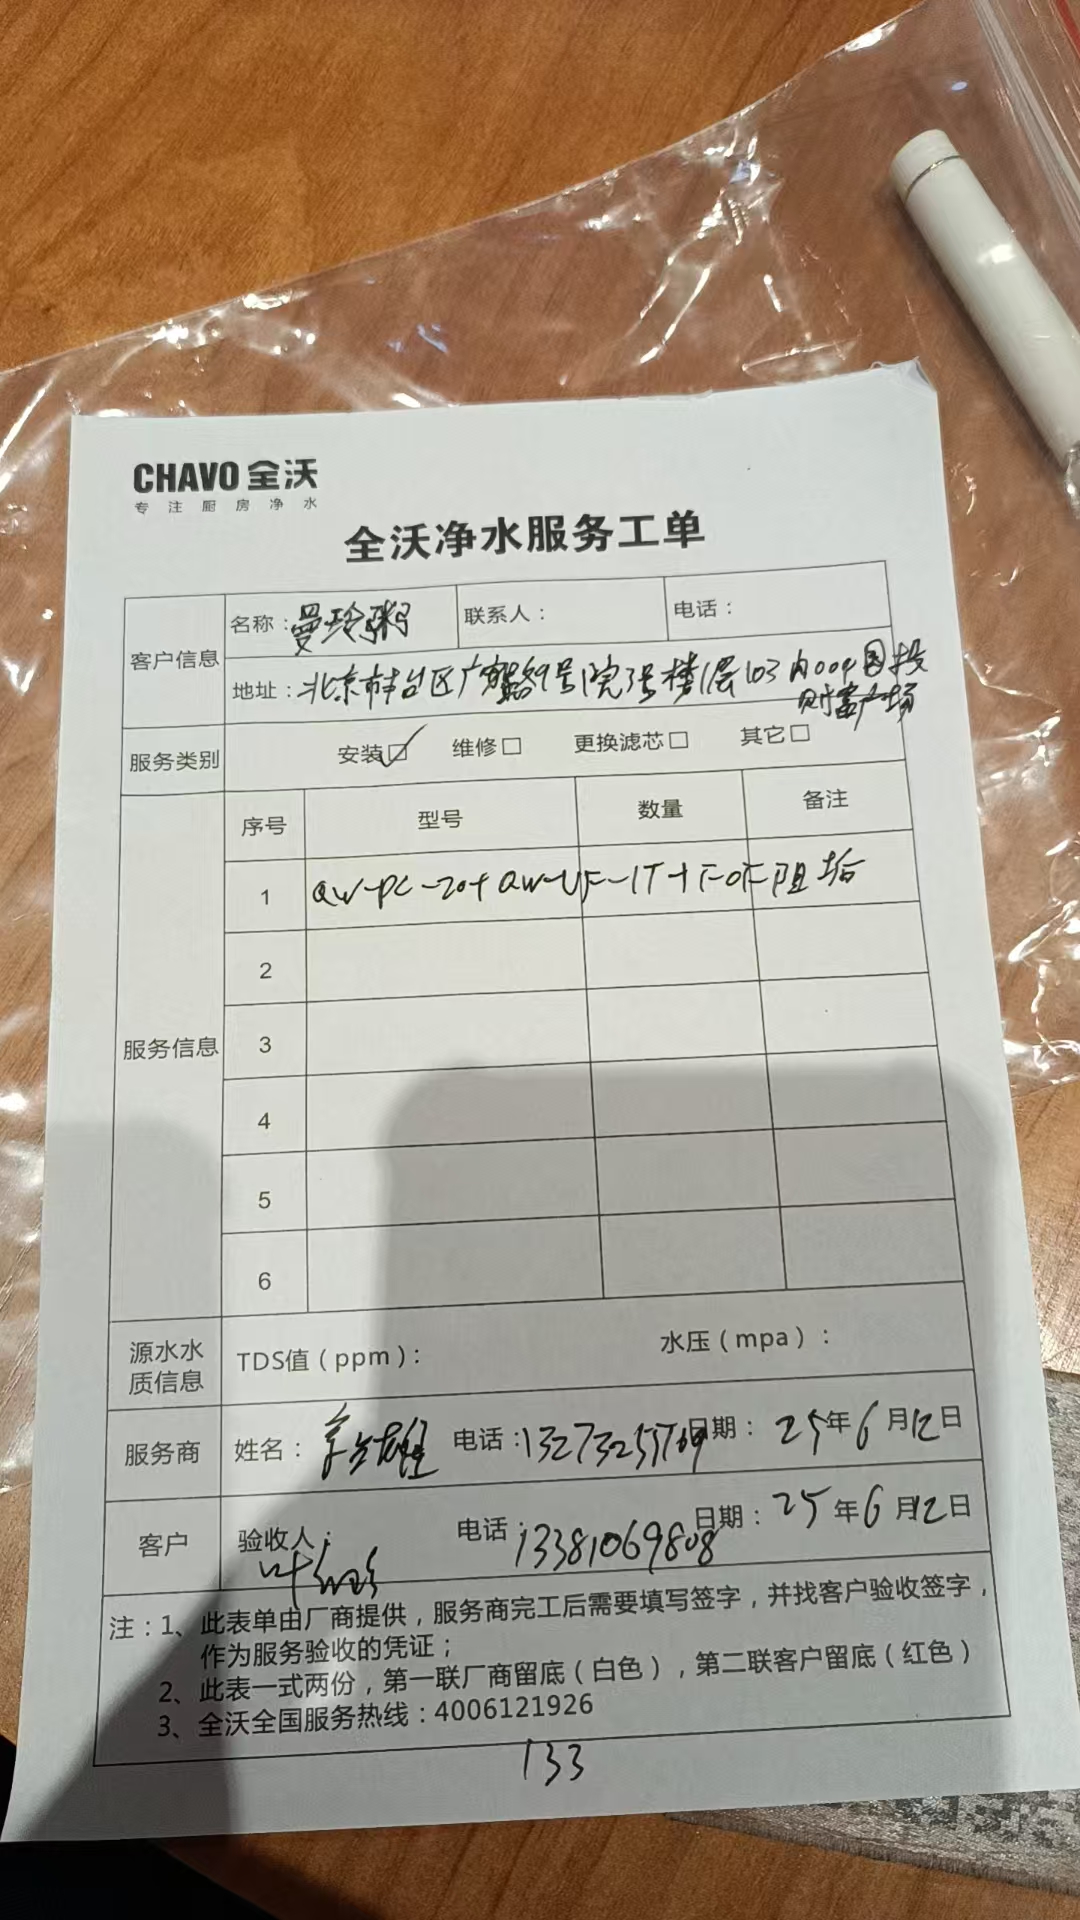 CHAVO 全沃
专注厨房净水
全沃净水服务工单
客户信息 名称：曼玲粥 联系人： 电话：
地址：北京市丰台区广安路9号院3号楼1层103内004国投
财富广场
服务类别 安装☑ 维修□ 更换滤芯□ 其它□
服务信息 序号 型号 数量 备注
1 QW-PC-20+QW-UF-1T+F-OF阻垢
2
3
4
5
6
源水水质信息 TDS值（ppm）： 水压（mpa）：
服务商 姓名： 电话： 日期：25年6月12日
客户 验收人： 电话：13381069808 日期：25年6月12日
注：1、此表单由厂商提供，服务商完工后需要填写签字，并找客户验收签字，
作为服务验收的凭证；
2、此表一式两份，第一联厂商留底（白色），第二联客户留底（红色）
3、全沃全国服务热线：4006121926
133